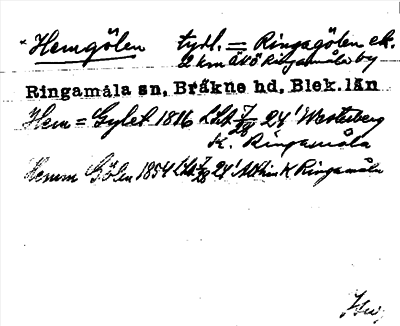 * Hemgölen tydl. = Ringagölen ek.
2 km ÖNÖ Ringamåla by
Ringamåla sn, Bräkne hd, Blek. län
Hem = Gylet 1816 24' Westerberg
K. Ringamåla
Hemm Gölen 1854 24' K Ringamåla